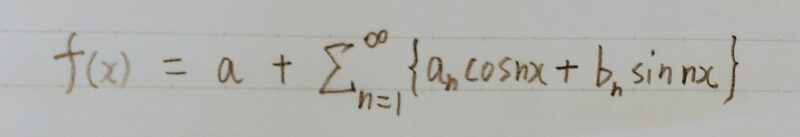 f(x) = a + ∑_{n=1}^{∞} {a_n cos nx + b_n sin nx}